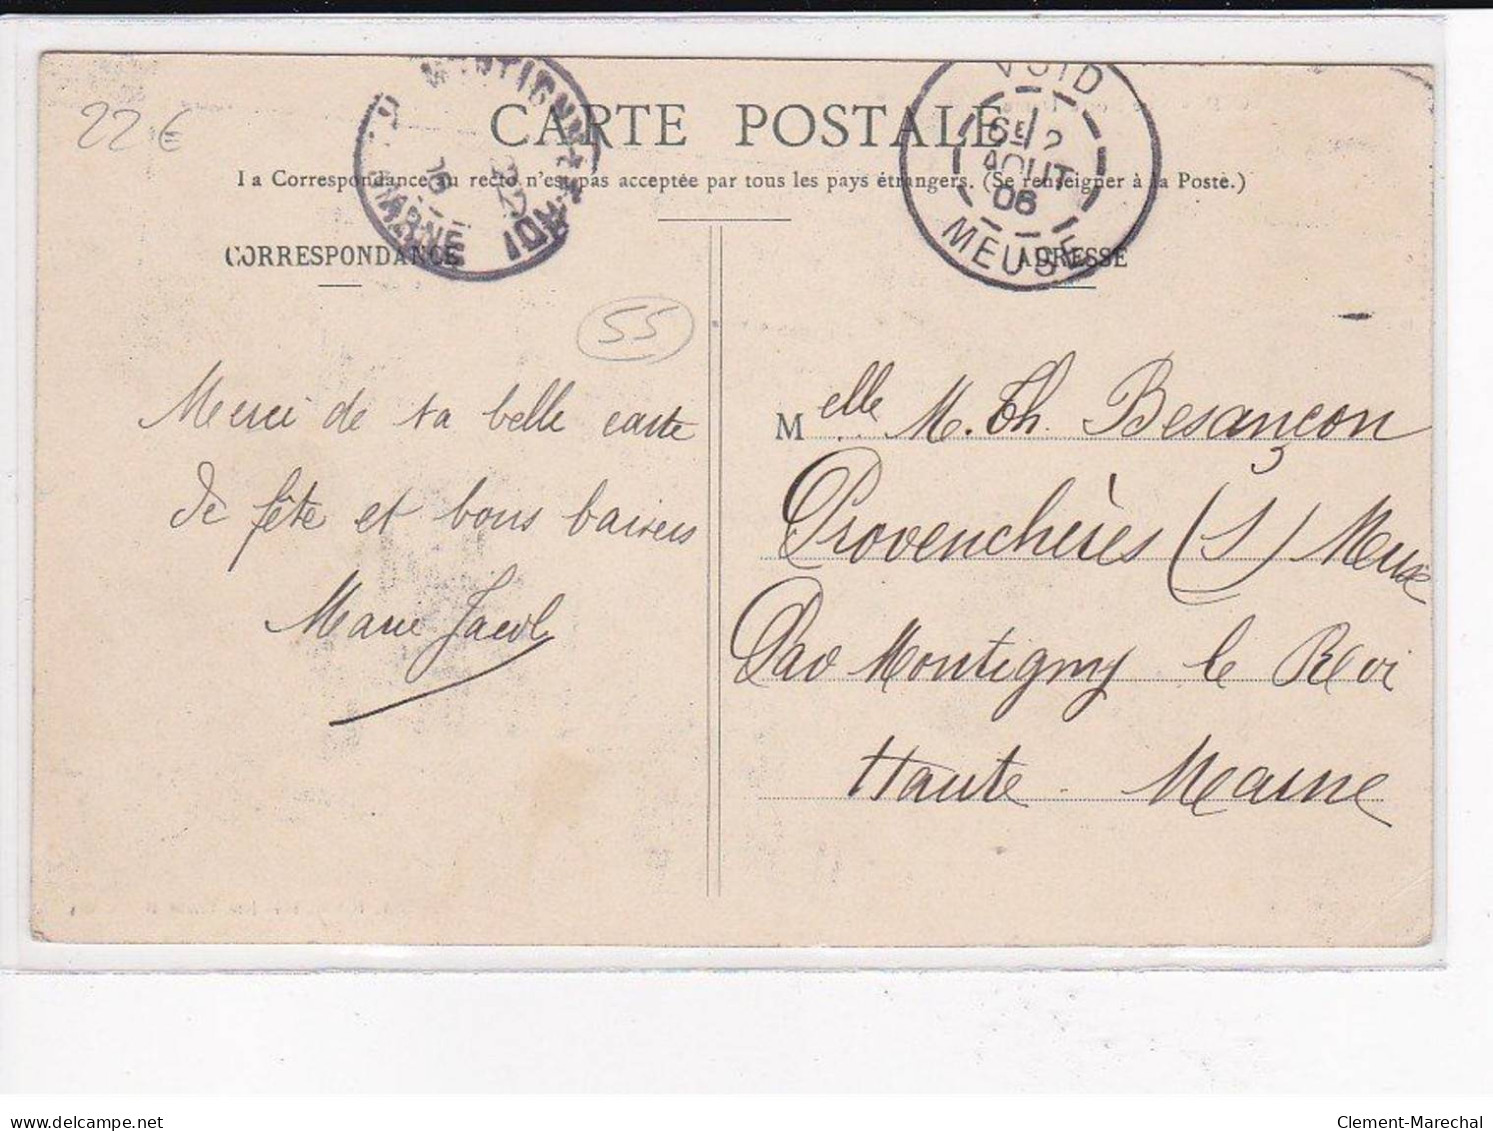 22 €
MONTIGNY-LE-ROI
Hte MARNE
CARTE POSTALE
VOID
AOUT
06
MEUSE
La Correspondance au recto n'est pas acceptée par tous les pays étrangers. (Se renseigner à la Poste.)
CORRESPONDANCE
ADRESSE
55
Merci de ta belle carte
de fête et bons baisers
Marie Jacob
Melle M. Th. Besançon
Provenchères (s/ Meuse
Par Montigny le Roi
Haute-Marne
delcampe.net
Clement-Marechal